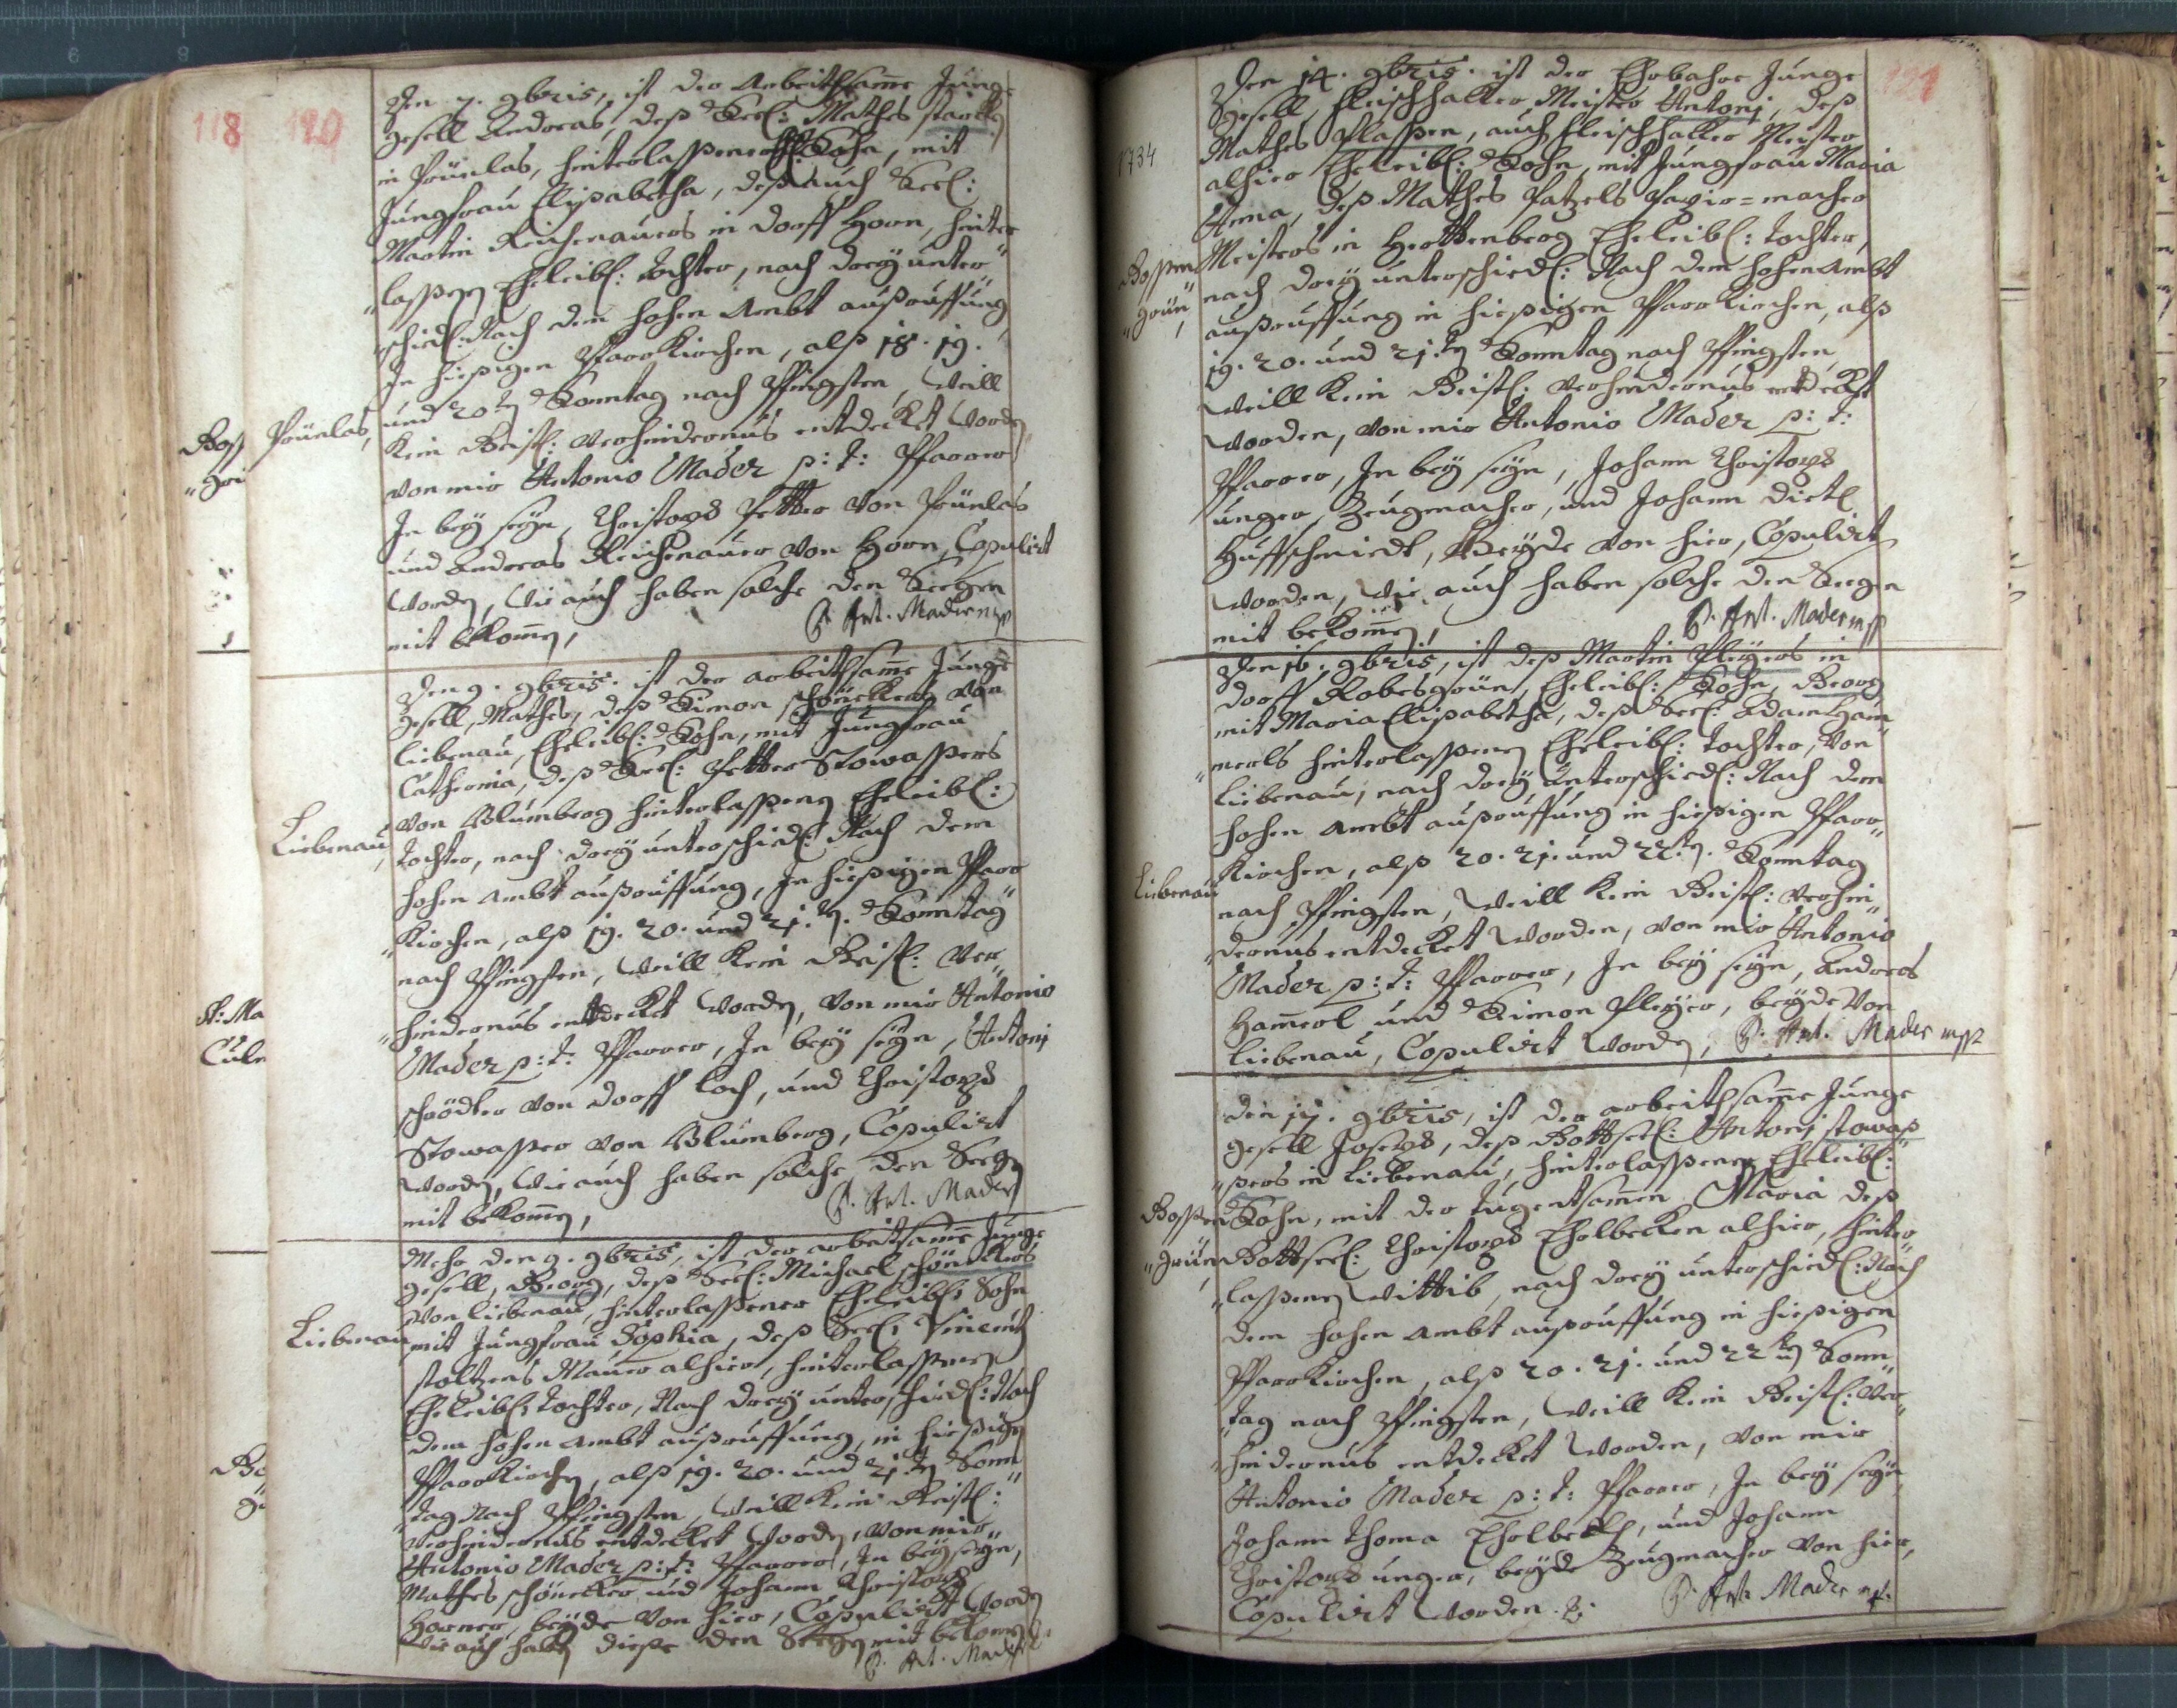 118 120
Den 7. 9bris, ist der Arbeithsame Junge
gesell Andreas, deß Seel: Mathes starkh
in Prünlas, hinterlaßener Sohn, mit
Jungfrau Elisabetha, deß auch Seel:
Martin Reichenauers in dorff Horn, hinter
"laßene Eheleibl: Tochter, nach dreÿ unter"
"schidl: Nach dem hohen Ambt außruffung
In hießigen PfarrKirchen, alß 18. 19.
und 20ten Sonntag nach Pfingsten, Weill
Kein Geistl: verhindernus entdeckt worden
von mir Antonio Mader p: t: Pfarrer
In beÿ seÿn, Christoph Petter von Prünlas
und Andreas Reichenauer von Horn, Copulirt
worden, Wie auch haben solche den Seegen
mit bekommen, P. Ant. Mader mp
Prünlas,
Den 9. 9bris. ist der arbeithsame Junge
gesell, Mathes, deß Simon schöneckers von
Liebenau, Eheleibl: Sohn, mit Jungfrau
Catherina, deß Seel: Petter Stowaßers
von Blumberg hinterlaßene Eheleibl:
Tochter, nach dreÿ unterschidl: Nach dem
hohen Ambt außruffung, In hießigen Pfarr
"Kirchen, alß 19. 20. und 21.ten Sonntag
nach Pfingsten, Weill Kein Geistl: Ver"
"hindernus entdecket worden, von mir Antonio
Mader p: t: Pfarrer, In beÿ seÿn, Antonj
schrödter von dorff Loch, und Christoph
Stowaßer von Blumberg, Copulirt
worden, Wie auch haben solche den Seegen
mit bekommen, P. Ant. Mader
Liebenau,
Mehr den 9. 9bris, ist der arbeitsame Junge
gesell, Georg, deß Seel: Michael schöneckers
von Liebenau, hinterlaßener Eheleibl: Sohn
mit Jungfrau Sophia, deß Seel: Vincentz
stoltzens Maurer alhier, hinterlaßene
Eheleibl: Tochter, Nach dreÿ unterschiedl: Nach
dem hohen Ambt außruffung, in hießigen
PfarrKirchen, alß 19. 20. und 21.ten Sonn
"tag Nach Pfingsten, Weill Kein Geistl:
verhindernus entdecket worden, von mir
Antonio Mader p: t: Pfarrer, In beÿ seÿn,
Mathes schönecker und Johann Christoph
Horner, beÿde von hier, Copulirt worden
Wie auch haben dieße den Seegen mit bekommen
P. Ant. Mader
Liebenau
121
1734
Den 14. 9bris. ist der Ehrbahre Junge
gesell, fleischhakker Meister Antonj, deß
Mathes Plaßen, auch fleischhakker Meister
alhier Eheleibl: Sohn, mit Jungfrau Maria
Anna, deß Mathes Patzels Papir=macher
Meisters in Herttenberg Eheleibl: Tochter,
nach dreÿ unterschiedl: Nach dem hohen Ambt
außruffung in hießigen PfarrKirchen, alß
19. 20. und 21.ten Sonntag nach Pfingsten
Weill Kein Geistl: verhindernus entdeckt
worden, von mir Antonio Mader p: t:
Pfarrer, In beÿ seÿn, Johann Christoph
unger, Zeugmacher, und Johann dietl
Huffschmiedt, Beÿde von hier, Copulirt
worden, Wie auch haben solche den Seegen
mit bekommen, P. Ant. Mader mp
Boßen
"grün,
Den 16. 9bris, ist deß Martin Pleÿers in
dorff Robesgrün, Eheleibl: Sohn, Georg
mit Maria Elisabetha, deß Seel: Adam Ham
"merls hinterlaßene Eheleibl: Tochter, Von
Liebenau, nach dreÿ unterschiedl: Nach dem
hohen Ambt außruffung in hießigen Pfarr"
"Kirchen, alß 20. 21. und 22.ten Sonntag
nach Pfingsten, Weill Kein Geistl: verhin"
"dernus entdecket worden, von mir Antonio
Mader p: t: Pfarrer, In beÿ seÿn, Andreas
Hamerl und Simon Pleÿer, beÿde Von
Liebenau, Copulirt worden, P. Ant. Mader mp
Liebenau
Den 17. 9bris, ist der arbeithsame Junge
gesell Joseph, deß Gottseel: Antonj stowaß
"ßers in Liebenau, hinterlaßener Eheleibl:
Sohn, mit der Tugentsamen Maria deß
Gottseel: Christoph Ehelbecken alhier, hinter"
"laßene Wittib, nach dreÿ unterschiedl: Nach
dem hohen Ambt außruffung in hießigen
PfarrKirchen, alß 20. 21. und 22ten Sonn"
"tag nach Pfingsten, Weill Kein Geistl: ver"
"hindernus entdecket worden, von mir
Antonio Mader p: t: Pfarrer, In beÿ seÿn
Johann Thoma Ehelbeckh, und Johann
Christoph unger, beÿde Zeugmacher von hier,
Copulirt worden. P. Ant. Mader mp.
Boßen
"grün,